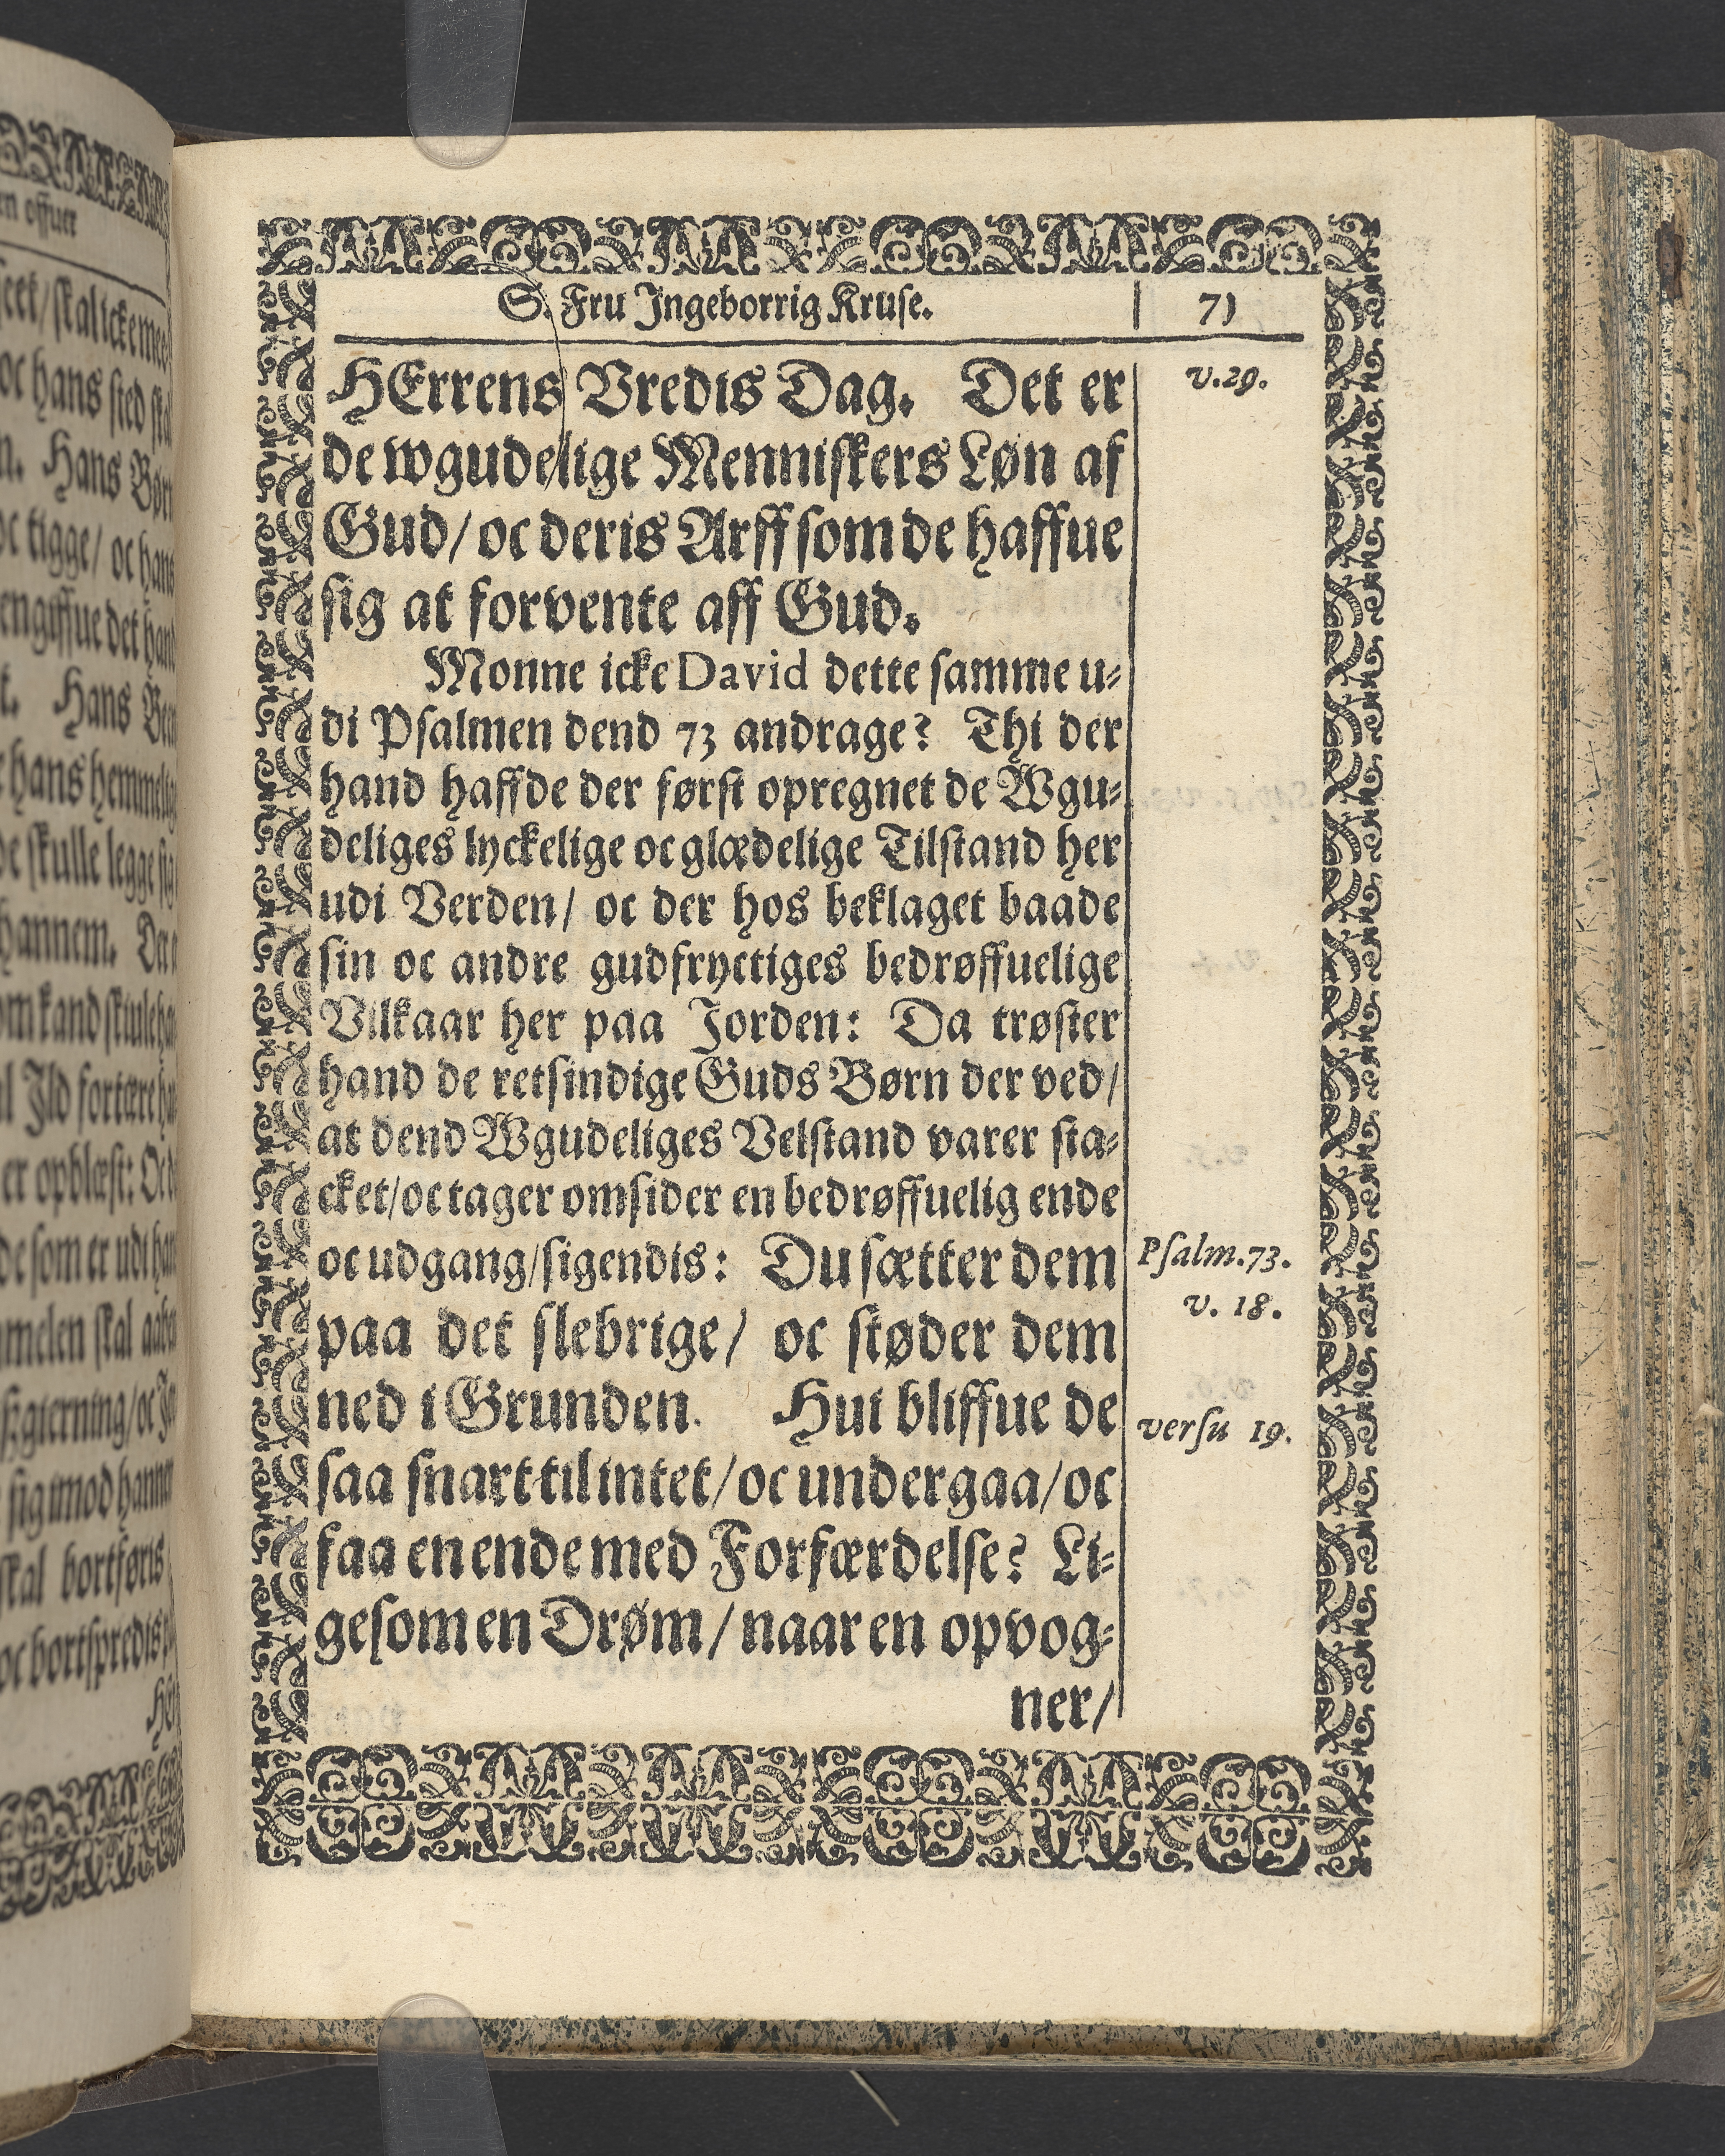 S. Fru Ingeborrig Kruse. 71
HErrens Vredis Dag. Det er
v.29.
de wgudelige Menniskers Løn af
Gud/ oc deris Arff som de haffue
sig at forvente aff Gud.
Monne icke David dette samme u-
di Psalmen dend 73 andrage? Thi der
hand haffde der først opregnet de Wgu-
deliges lyckelige oc glædelige Tilstand her
udi Verden/ oc der hos beklaget baade
sin oc andre gudfryctiges bedrøffuelige
Vilkaar her paa Jorden: Da trøster
hand de retsindige Guds Børn der ved/
at dend Wgudeliges Velstand varer sta-
cket/ oc tager omsider en bedrøffuelig ende
oc udgang/ sigendis: Du sætter dem
Psalm.73.
v. 18.
paa det slebrige/ oc støder dem
ned i Grunden. Hui bliffue de
versu 19.
saa snart til intet/ oc undergaa/ oc
faa en ende med Forfærdelse? Li-
gesom en Drøm/ naar en opvog-
ner/
en offuer
oc hans sted
Hans
oc tigge/ oc hans
Hans
hans
de skulle legge
hannem.
Ild fortære
er opblæst:
de som er udi
skal
sig imod
skal bortføris
oc bortspredis